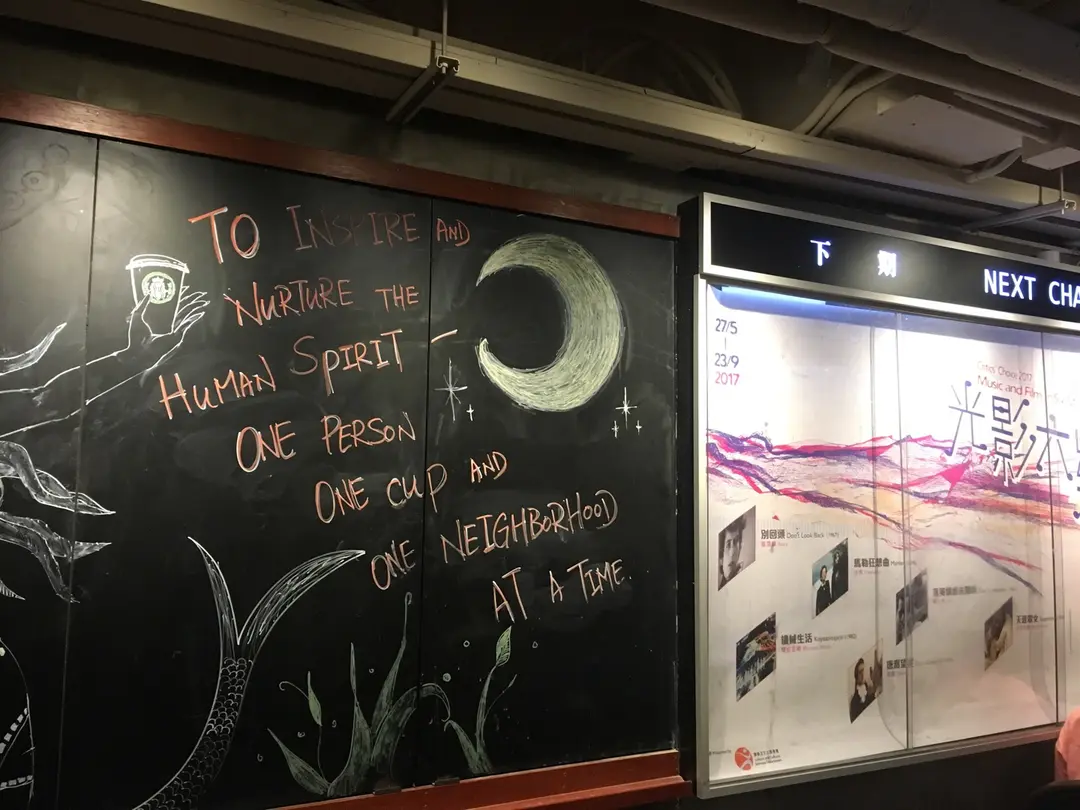 TO INSPIRE AND
NURTURE THE
HUMAN SPIRIT –
ONE PERSON
ONE CUP AND
ONE NEIGHBORHOOD
AT A TIME.
下 期
NEXT CHA
27/5
23/9
2017
Critics' Choice 2017
Music and Film
光影
別回頭 Don't Look Back (1967)
馬勒狂想曲
機械生活 Koyaanisqatsi (1982)